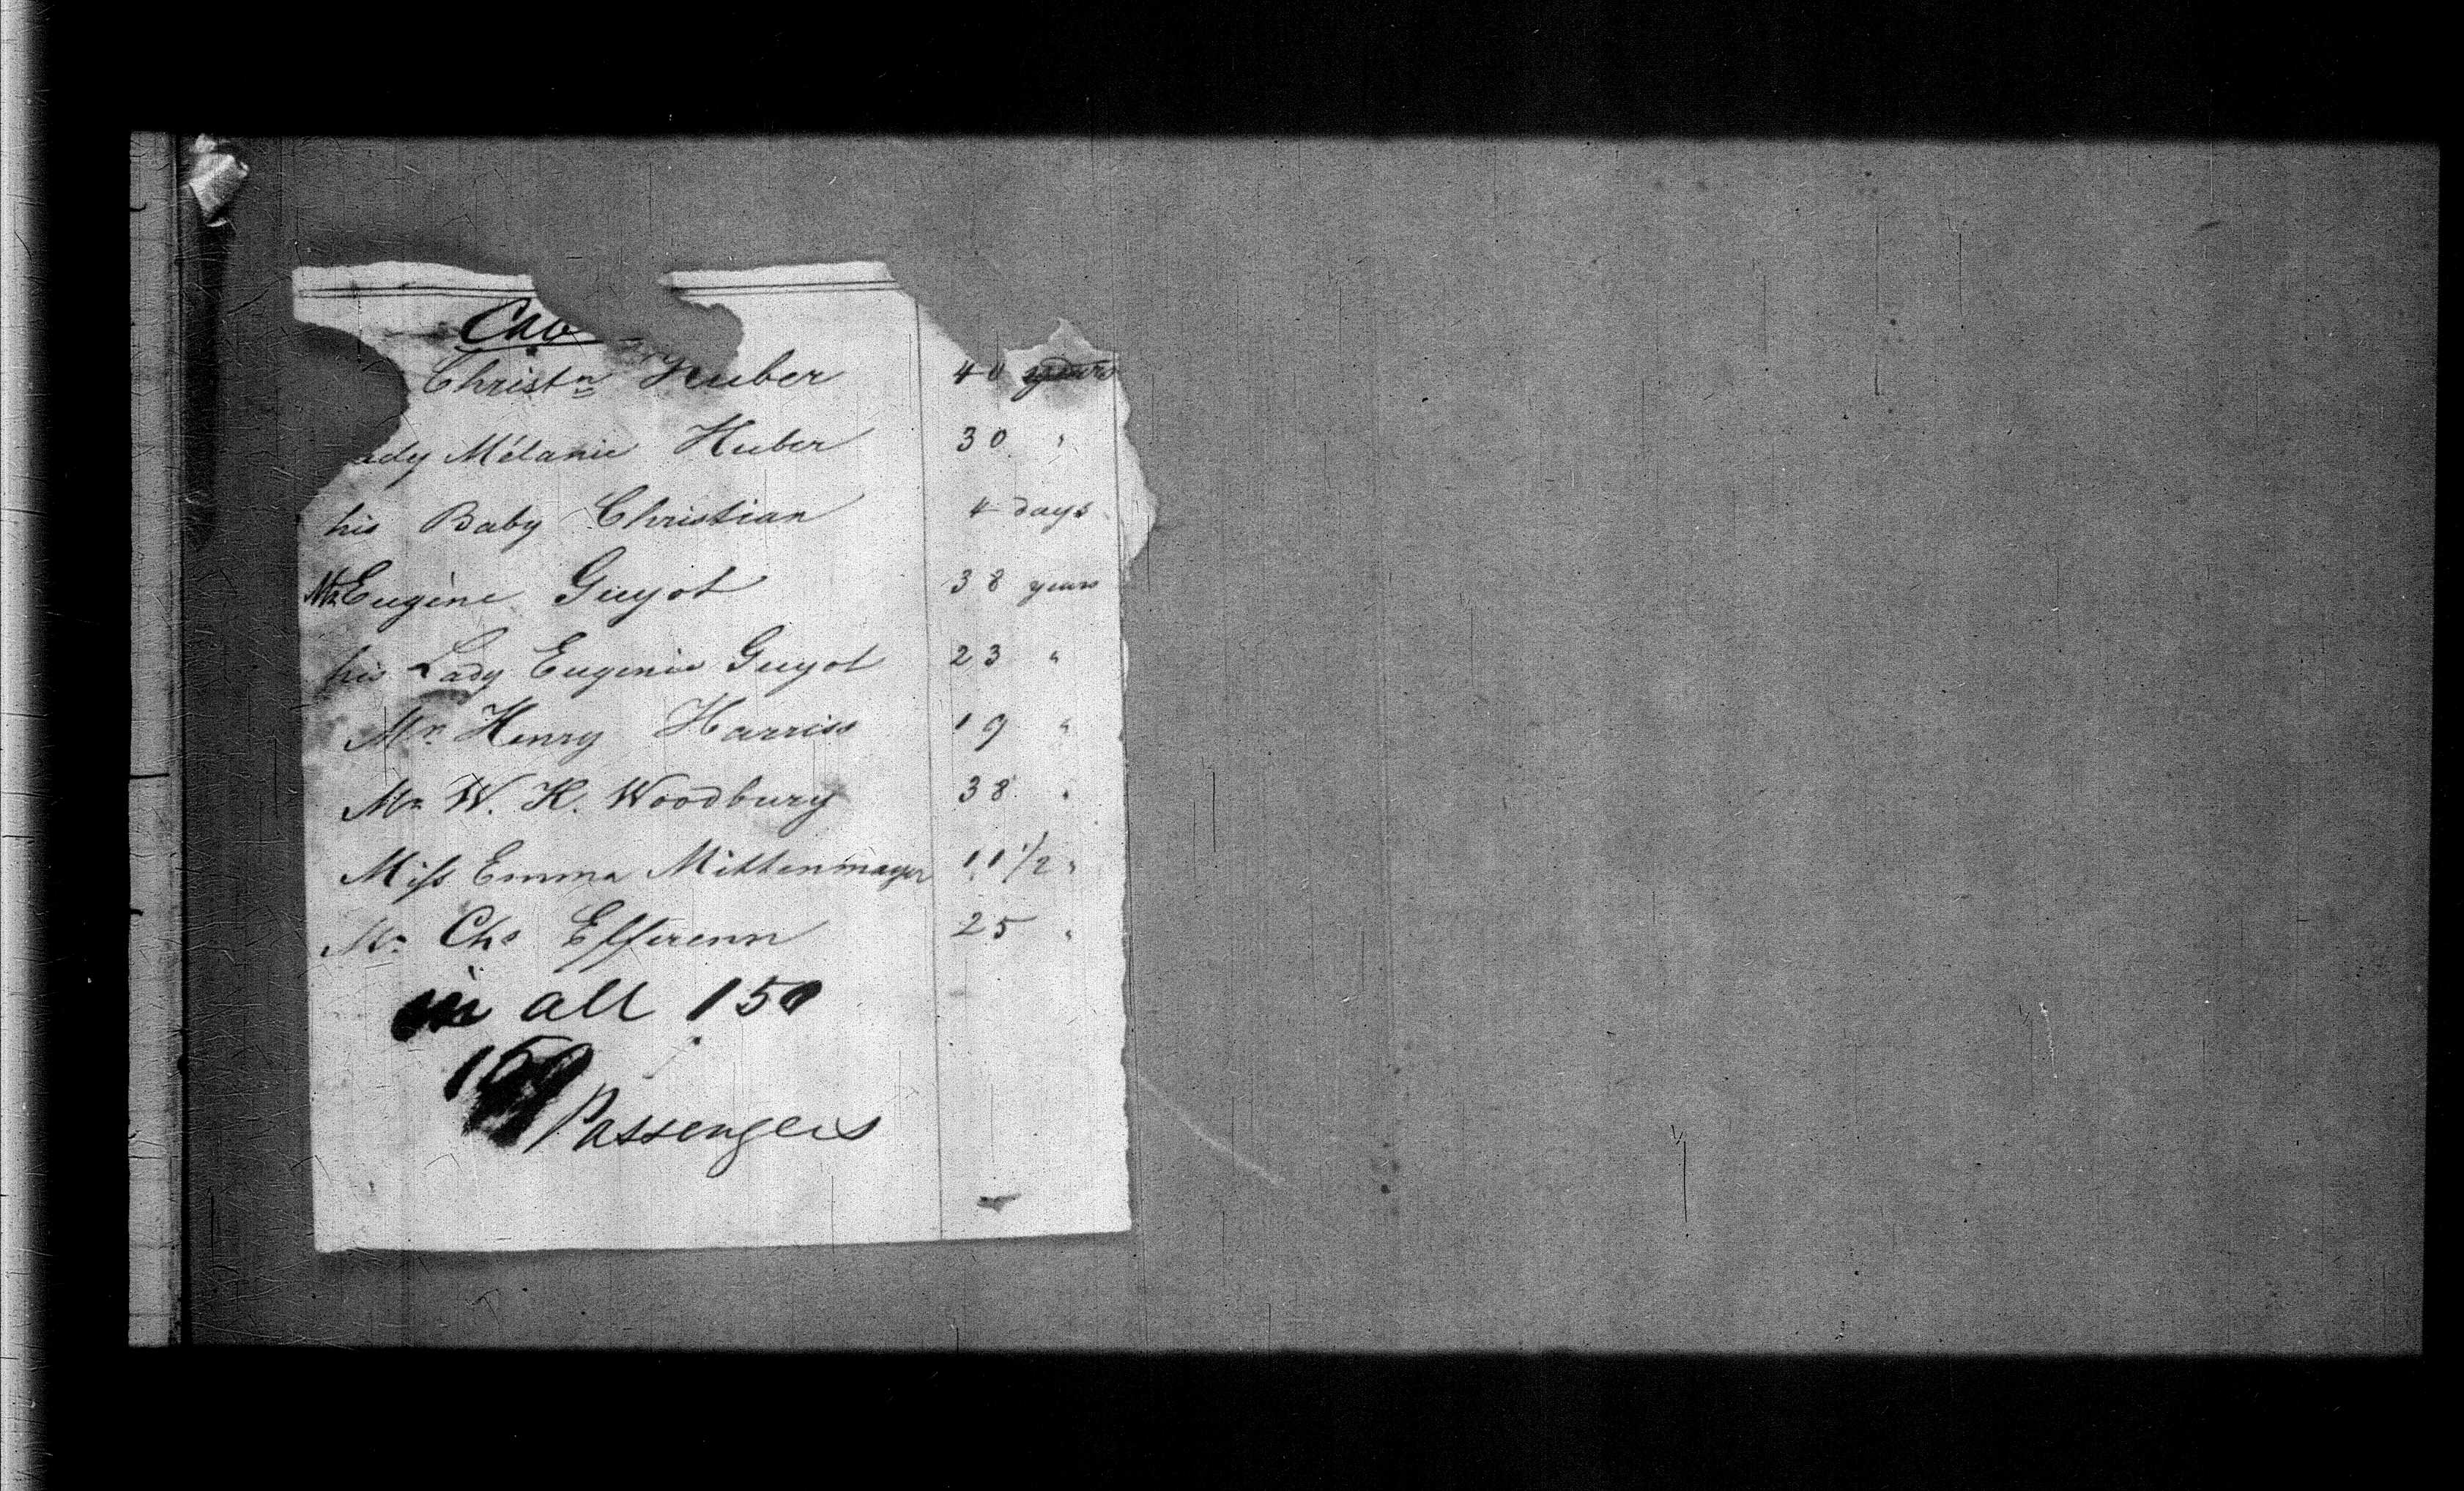 Cab
Christn Huber 40 years
ady Mélanie Huber 30 "
his Baby Christian 4 days
Mr Eugène Guyot 38 years
his Lady Eugenie Guyot 23 "
Mr. Henry Harriss 19 "
Mr W. H. Woodbury 38 "
Miss Emma Mittenmayer 11 1/2 "
Mr Chs Efferenn 25 "
in all 150
Passengers